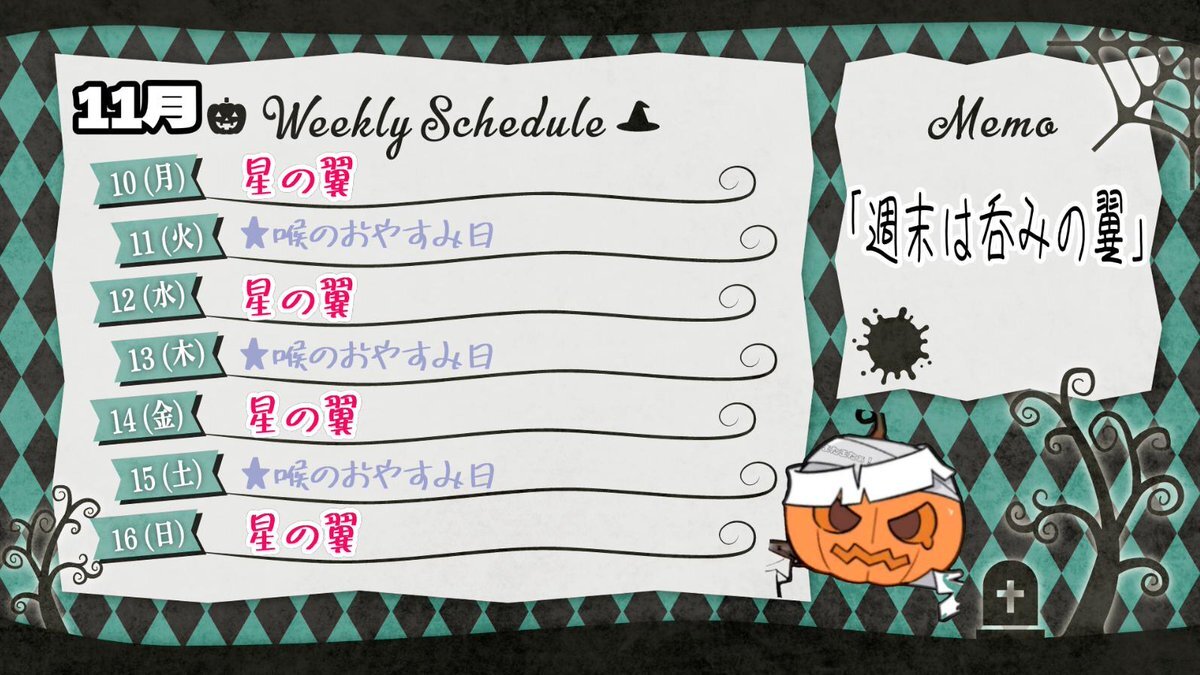 11月 Weekly Schedule
10(月) 星の翼
11(火) ★喉のおやすみ日
12(水) 星の翼
13(木) ★喉のおやすみ日
14(金) 星の翼
15(土) ★喉のおやすみ日
16(日) 星の翼
Memo
「週末は呑みの翼」